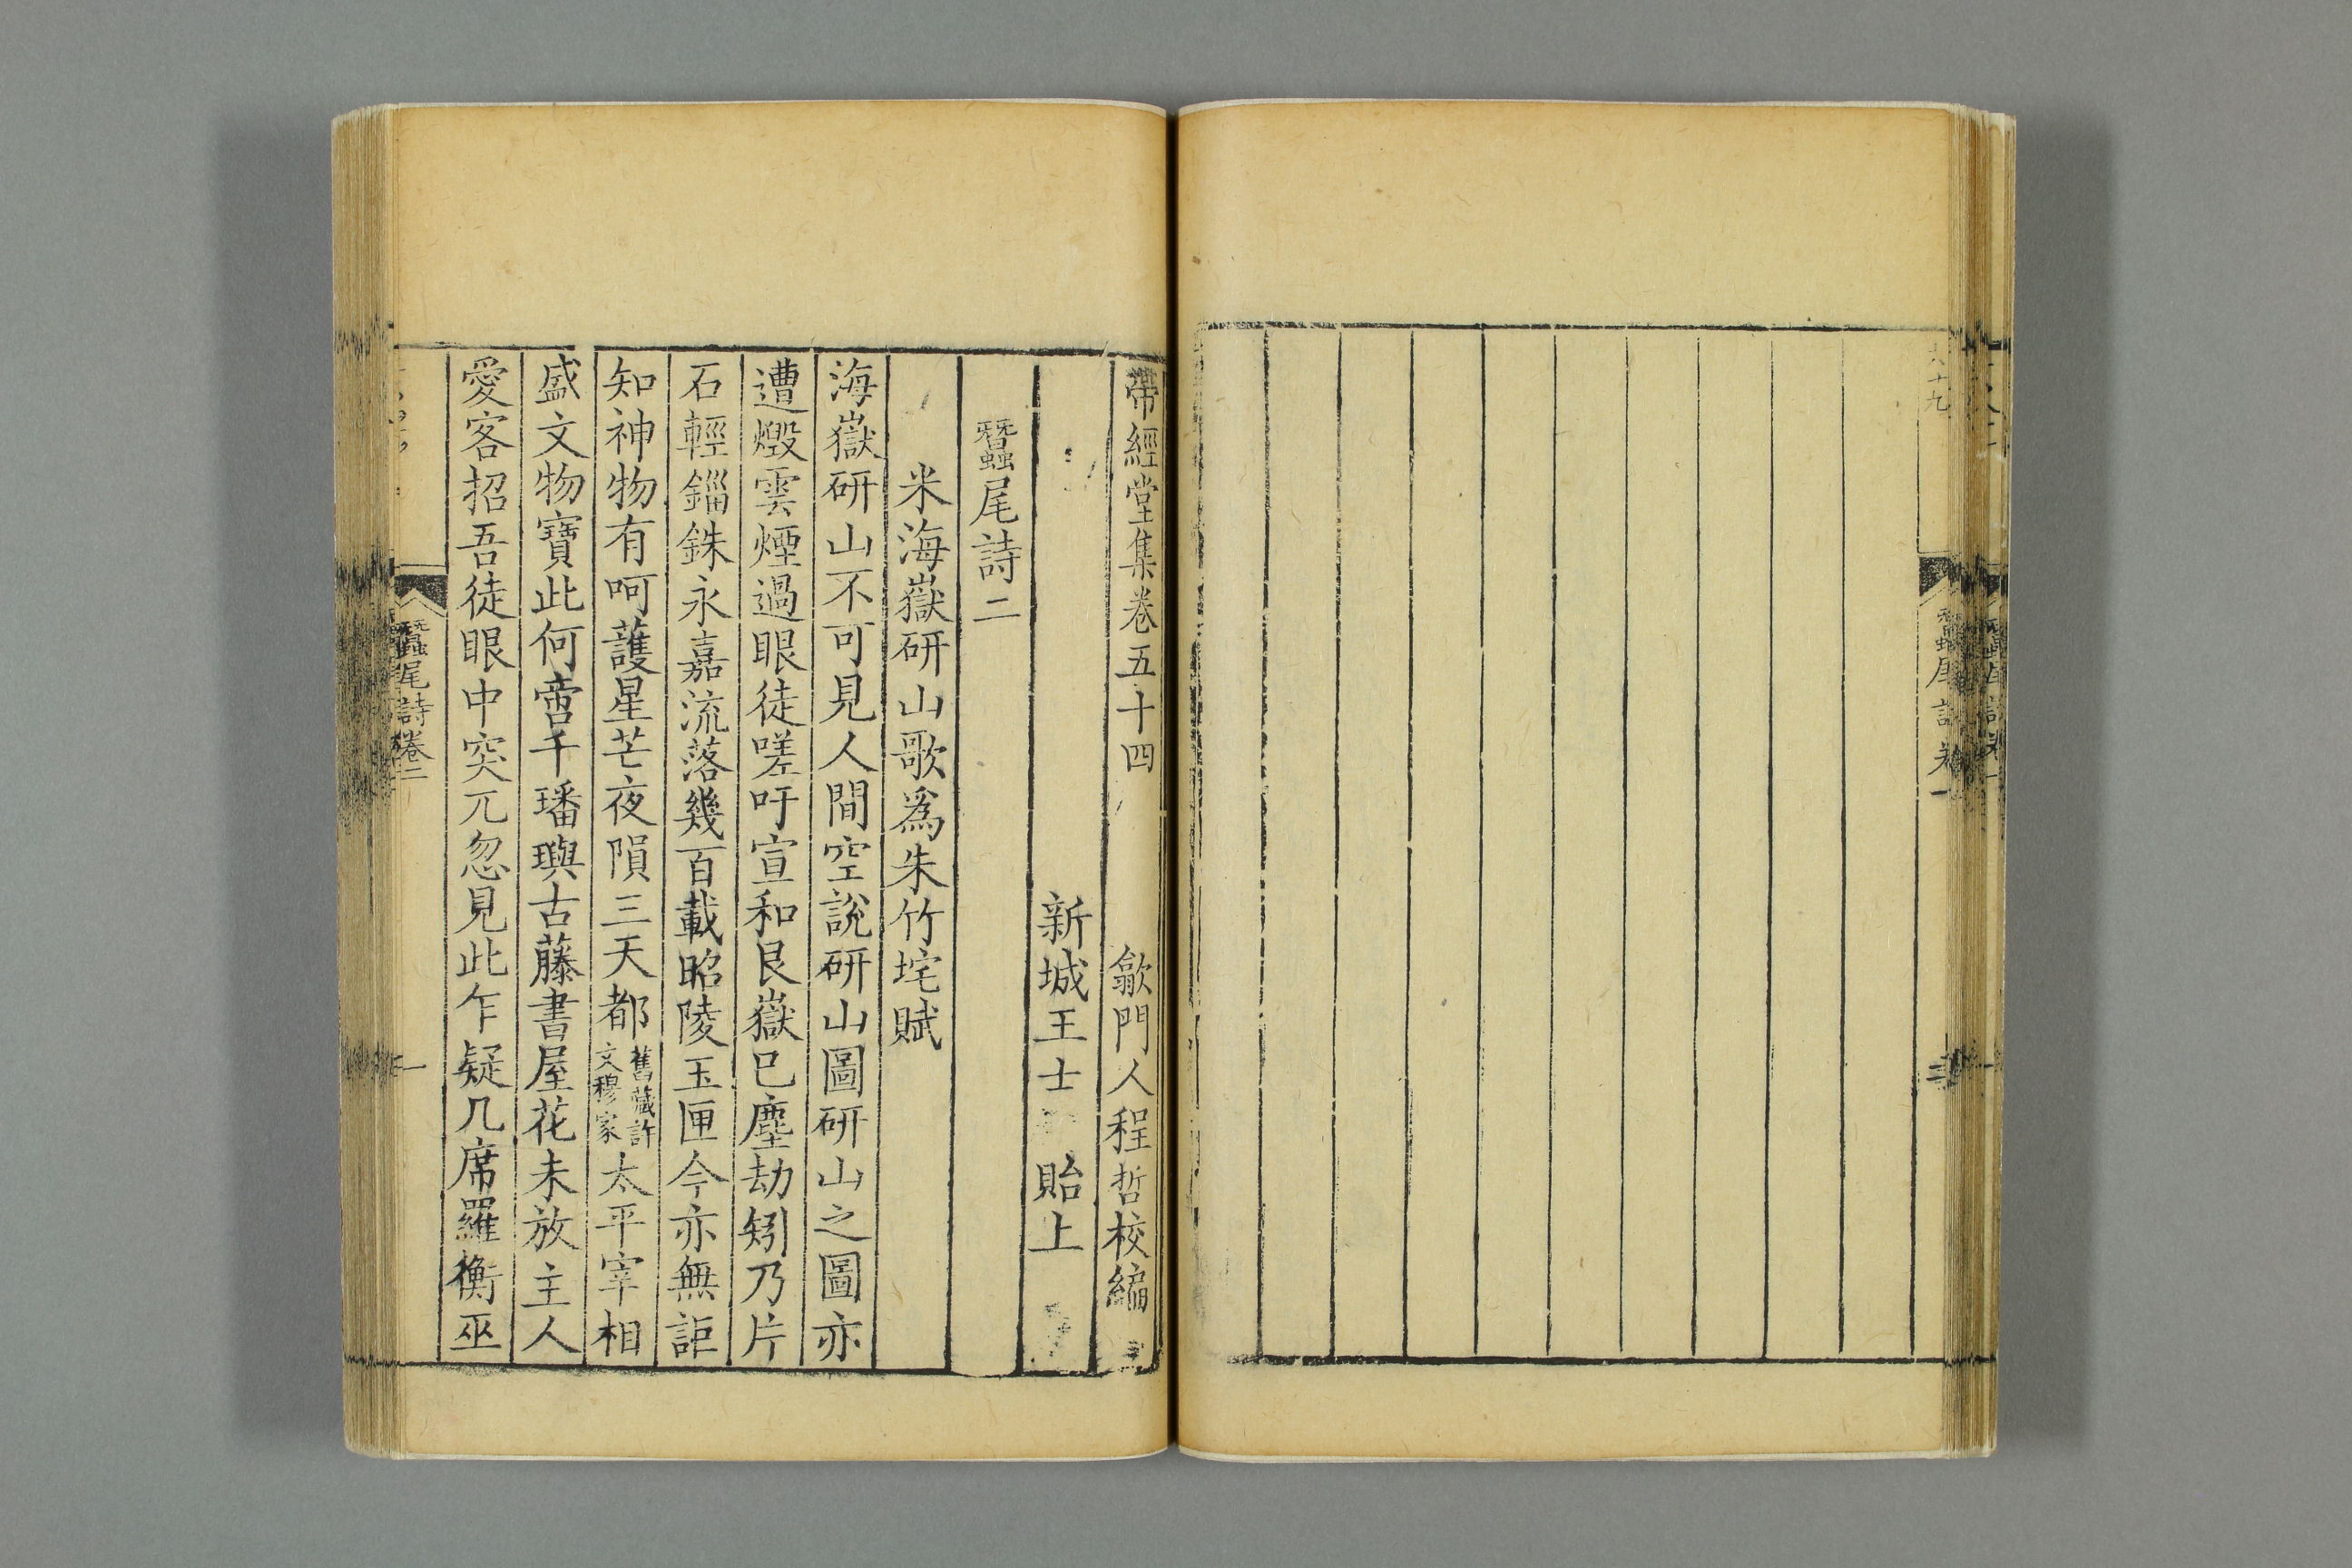 帶經堂集卷五十四　歙門人程哲校編
新城王士　貽上
蠶尾詩二
米海嶽研山歌爲朱竹垞賦
海嶽研山不可見人間空說研山圖研山之圖亦
遭燬雲煙過眼徒嗟吁宣和艮嶽已塵劫矧乃片
石輕錙銖永嘉流落幾百載昭陵玉匣今亦無詎
知神物有呵護星芒夜隕三天都舊藏許文穆家太平宰相
盛文物寶此何啻千璠璵古藤書屋花未放主人
愛客招吾徒眼中突兀忽見此乍疑几席羅衡巫
蠶尾詩卷二
一